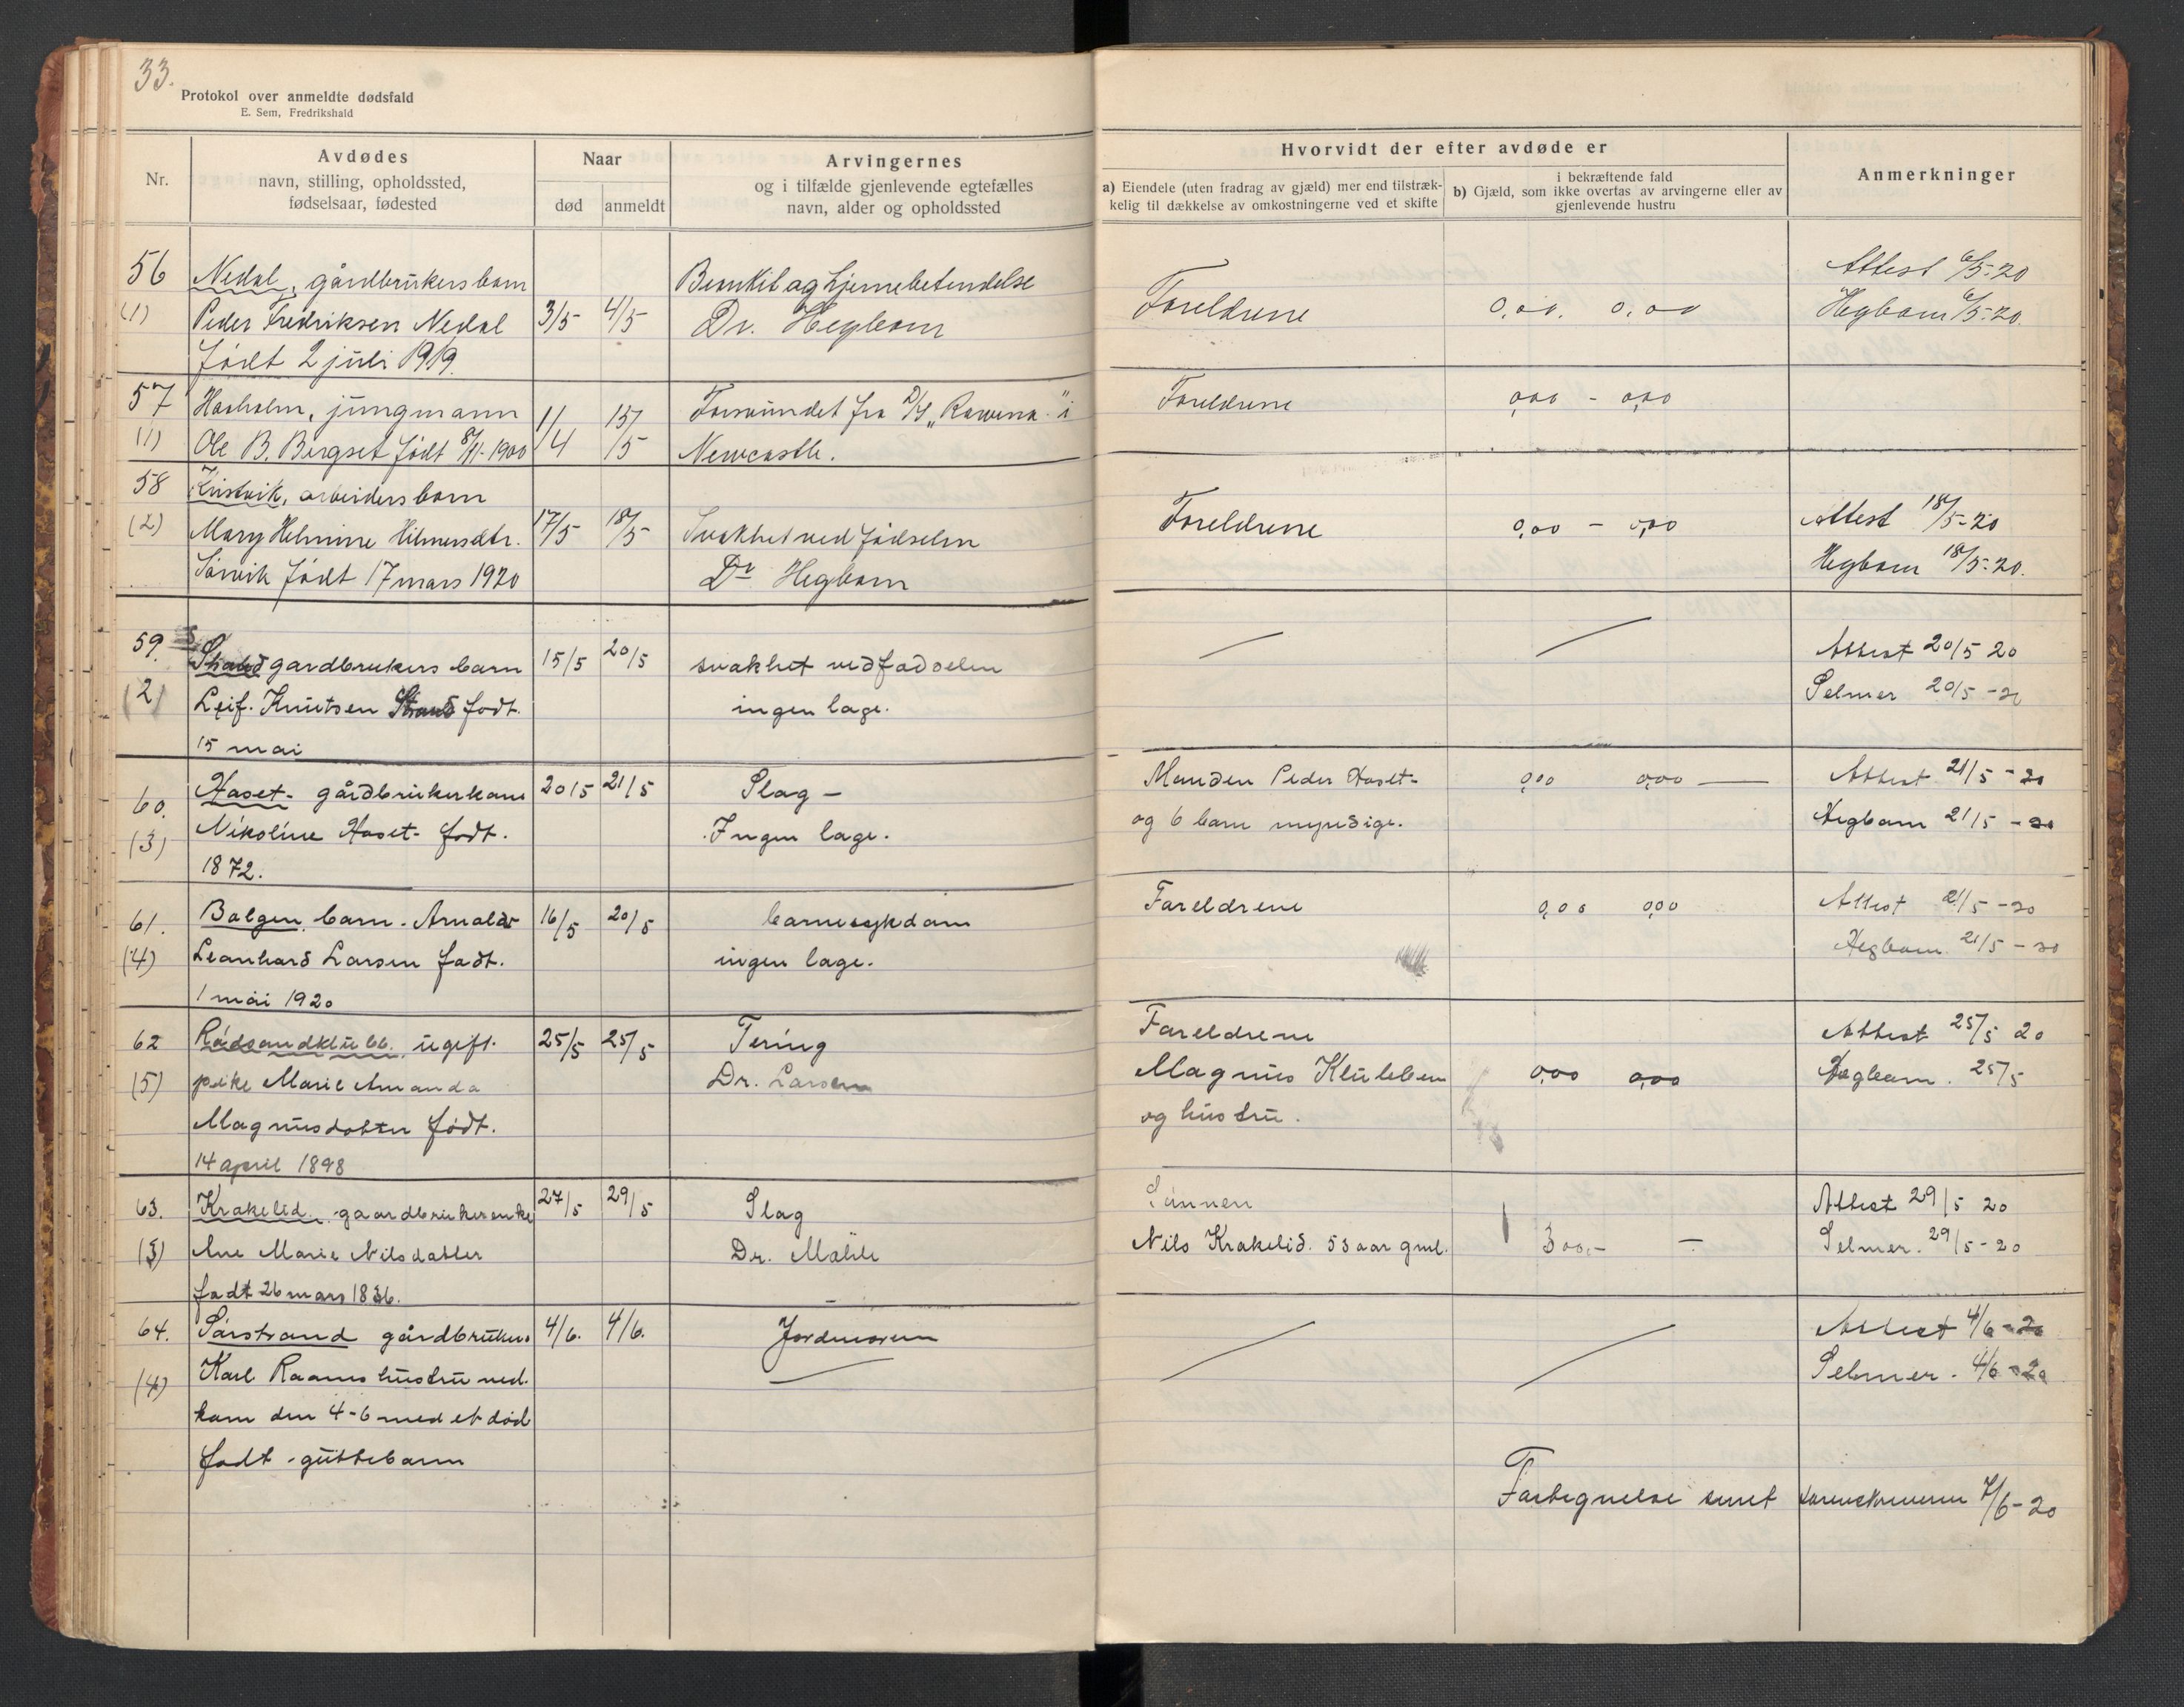 33.
Protokol over anmeldte dødsfald
E. Sem, Fredrikshald
Nr.
Avdødes
navn, stilling, opholdssted,
fødselsaar, fødested
Naar
død
anmeldt
Arvingernes
og i tilfælde gjenlevende egtefælles
navn, alder og opholdssted
Hvorvidt der efter avdøde er
a) Eiendele (uten fradrag av gjæld) mer end tilstræk-
kelig til dækkelse av omkostningerne ved et skifte
i bekræftende fald
b) Gjæld, som ikke overtas av arvingerne eller av
gjenlevende hustru
Anmerkninger
56 Nedal, gårdbrukersbarn Bronkit og hjernebetendelse Attest 6/5-20
(1) Peder Fredriksen Nedal 3/5 4/5 Dr. Hegbom Foreldrene 0,00. 0,00 Hegbom 6/5-20.
født 2 juli 1919.
57 jungmann 11/4 15/5 Forsvundet fra D/S „Rowena" i Foreldrene 0,00 - 0,00
(1) Ole B. Bergset født 8/11-1900 Newcastle.
58 Kristvik, arbeidersbarn
(2) Mary Helmine Hilmersdtr. 17/5 18/5 Svakhet ved fødselen Foreldrene 0,00 - 0,00 Attest 18/5-20
Sørvik født 17 mars 1920 Dr Hegbom Hegbom 18/5-20.
59. Strand gardbrukers barn 15/5 20/5 svakhet ved fødselen Attest 20/5 20
(2) Leif. Knutsen Strand født. ingen læge. Selmer 20/5-20
15 mai
60. Haset- gårdbrukerkone 20/5 21/5 Slag - Manden Peder Haset- 0,00 0,00 — Attest 21/5-20
(3) Nikoline Haset- født. Ingen læge. og 6 barn myndige. Hegbom 21/5-20
1872.
61. Bolgen, barn. Arnold 16/5 20/5 barnesykdom Foreldrene 0,00 0,00 Attest 21/5-20
(4) Leonhard Larsen født. ingen læge. Hegbom 21/5-20
1 mai 1920
62 Rødsandklubb. ugift. 25/5 25/5 Tering Foreldrene Attest 25/5 20
(5) pike Marie Amanda Dr. Larsen Magnus Klubben 0,00 0,00 Hegbom. 25/5
Magnusdatter født. og hustru.
14 april 1898
63. Krakelid. gaardbrukerenke 27/5 29/5 Slag Sønnen Attest 29/5 20
(3) Ane Marie Nilsdatter Dr. Mæhle Nils Krakelid. 53 aar gml. 300.- — Selmer. 29/5-20
født 26 mars 1836.
64. Sørstrand gårdbrukers 4/6. 4/6. Jordmoren Attest 4/6-20
(4) Karl Raanes hustru ned. Selmer. 4/6-20
kom den 4-6 med et død
født guttebarn
Fortegnelse sendt sorenskriveren 7/6-20